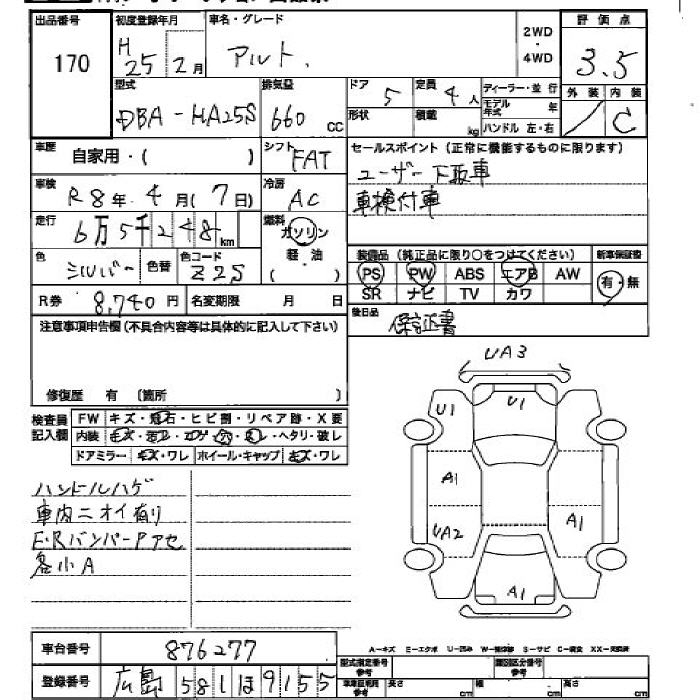 出品番号 初度登録年月 車名・グレード 2WD・4WD 評価点
170 H25 2月 アルト 3.5
型式 排気量 ドア 定員 ディーラー・並行 外装 内装
DBA-HA25S 660cc 5 4人 モデル年式 年 C
形状 積載 kg ハンドル 左・右
車歴 自家用・( ) シフト FAT セールスポイント (正常に機能するものに限ります)
車検 R8年4月(7日) 冷房 AC ユーザー下取車
車検付車
走行 6万5千248km 燃料 ガソリン 軽油 ( )
色 シルバー 色替 色コード Z2S 装備品 (純正品に限り○をつけてください) 新車保証書
PS PW ABS エアB AW 有・無
R券 8,740円 名変期限 月 日 SR ナビ TV カワ
注意事項申告欄 (不具合内容等は具体的に記入して下さい) 後日品 保証書
修復歴 有 (箇所 )
検査員記入欄 FW キズ・飛石・ヒビ割・リペア跡・X要
内装 キズ・ヨゴレ・コゲ・穴・スレ・ヘタリ・破レ
ドアミラー キズ・ワレ ホイール・キャップ キズ・ワレ
UA3
U1 U1
A1
UA2 A1
A1
ハンドルハゲ
車内ニオイ有り
F・RバンパーPアセ
各小A
A-キズ E-エクボ U-凹み
車台番号 876277
登録番号 広島581ほ9155
型式指定番号 参考 類別区分番号 参考
参考 長さ cm 幅 cm 高さ cm